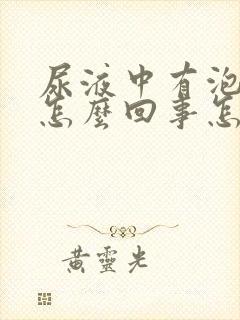 尿液中有泡
怎麼回事怎
黃靈光